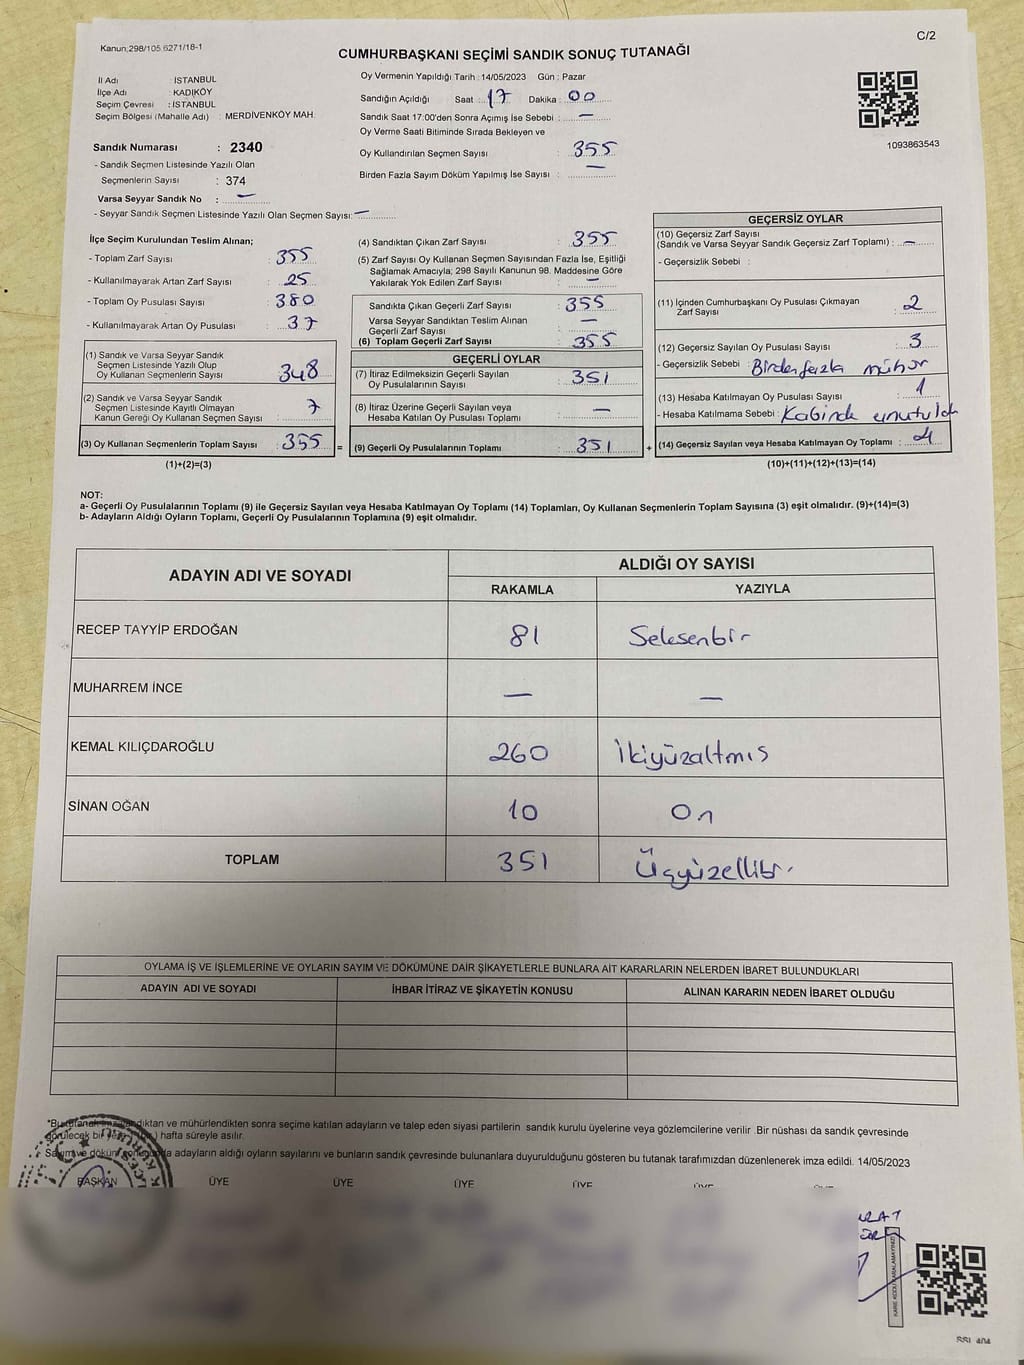 Kanun:298/105.6271/18-1
C/2
CUMHURBAŞKANI SEÇİMİ SANDIK SONUÇ TUTANAĞI
İl Adı : İSTANBUL
İlçe Adı : KADIKÖY
Seçim Çevresi : İSTANBUL
Seçim Bölgesi (Mahalle Adı) : MERDİVENKÖY MAH.
Sandık Numarası : 2340
- Sandık Seçmen Listesinde Yazılı Olan
Seçmenlerin Sayısı : 374
Varsa Seyyar Sandık No : —
- Seyyar Sandık Seçmen Listesinde Yazılı Olan Seçmen Sayısı: —
Oy Vermenin Yapıldığı Tarih : 14/05/2023 Gün : Pazar
Sandığın Açıldığı Saat : 17 Dakika : 00
Sandık Saat 17:00'den Sonra Açımış İse Sebebi : —
Oy Verme Saati Bitiminde Sırada Bekleyen ve
Oy Kullandırılan Seçmen Sayısı : 355
Birden Fazla Sayım Döküm Yapılmış İse Sayısı : —
1093863543
İlçe Seçim Kurulundan Teslim Alınan;
- Toplam Zarf Sayısı : 355
- Kullanılmayarak Artan Zarf Sayısı : 25
- Toplam Oy Pusulası Sayısı : 380
- Kullanılmayarak Artan Oy Pusulası : 37
(1) Sandık ve Varsa Seyyar Sandık
Seçmen Listesinde Yazılı Olup
Oy Kullanan Seçmenlerin Sayısı : 348
(2) Sandık ve Varsa Seyyar Sandık
Seçmen Listesinde Kayıtlı Olmayan
Kanun Gereği Oy Kullanan Seçmen Sayısı : 7
(3) Oy Kullanan Seçmenlerin Toplam Sayısı : 355 =
(1)+(2)=(3)
(4) Sandıktan Çıkan Zarf Sayısı : 355
(5) Zarf Sayısı Oy Kullanan Seçmen Sayısından Fazla İse, Eşitliği
Sağlamak Amacıyla; 298 Sayılı Kanunun 98. Maddesine Göre
Yakılarak Yok Edilen Zarf Sayısı : —
Sandıkta Çıkan Geçerli Zarf Sayısı : 355
Varsa Seyyar Sandıktan Teslim Alınan
Geçerli Zarf Sayısı : —
(6) Toplam Geçerli Zarf Sayısı : 355
GEÇERLİ OYLAR
(7) İtiraz Edilmeksizin Geçerli Sayılan
Oy Pusulalarının Sayısı : 351
(8) İtiraz Üzerine Geçerli Sayılan veya
Hesaba Katılan Oy Pusulası Toplamı : —
(9) Geçerli Oy Pusulalarının Toplamı : 351 +
GEÇERSİZ OYLAR
(10) Geçersiz Zarf Sayısı
(Sandık ve Varsa Seyyar Sandık Geçersiz Zarf Toplamı) : —
- Geçersizlik Sebebi :
(11) İçinden Cumhurbaşkanı Oy Pusulası Çıkmayan
Zarf Sayısı : 2
(12) Geçersiz Sayılan Oy Pusulası Sayısı : 3
- Geçersizlik Sebebi : Birden fazla mühür
(13) Hesaba Katılmayan Oy Pusulası Sayısı : 1
- Hesaba Katılmama Sebebi : Kabinde unutuldu
(14) Geçersiz Sayılan veya Hesaba Katılmayan Oy Toplamı : 4
(10)+(11)+(12)+(13)=(14)
NOT:
a- Geçerli Oy Pusulalarının Toplamı (9) ile Geçersiz Sayılan veya Hesaba Katılmayan Oy Toplamı (14) Toplamları, Oy Kullanan Seçmenlerin Toplam Sayısına (3) eşit olmalıdır. (9)+(14)=(3)
b- Adayların Aldığı Oyların Toplamı, Geçerli Oy Pusulalarının Toplamına (9) eşit olmalıdır.
ADAYIN ADI VE SOYADI
ALDIĞI OY SAYISI
RAKAMLA YAZIYLA
RECEP TAYYİP ERDOĞAN 81 Seksenbir
MUHARREM İNCE — —
KEMAL KILIÇDAROĞLU 260 İkiyüzaltmış
SİNAN OĞAN 10 On
TOPLAM 351 Üçyüzellibir
OYLAMA İŞ VE İŞLEMLERİNE VE OYLARIN SAYIM VE DÖKÜMÜNE DAİR ŞİKAYETLERLE BUNLARA AİT KARARLARIN NELERDEN İBARET BULUNDUKLARI
ADAYIN ADI VE SOYADI İHBAR İTİRAZ VE ŞİKAYETİN KONUSU ALINAN KARARIN NEDEN İBARET OLDUĞU
*Bu tutanak imzalandıktan ve mühürlendikten sonra seçime katılan adayların ve talep eden siyasi partilerin sandık kurulu üyelerine veya gözlemcilerine verilir .Bir nüshası da sandık çevresinde
görülecek bir yere (bir) hafta süreyle asılır.
Sayım ve döküm sonucunda adayların aldığı oyların sayılarını ve bunların sandık çevresinde bulunanlara duyurulduğunu gösteren bu tutanak tarafımızdan düzenlenerek imza edildi. 14/05/2023
BAŞKAN ÜYE ÜYE ÜYE ÜYE ÜYE ÜYE
KARE KODU KARALAMAYINIZ!